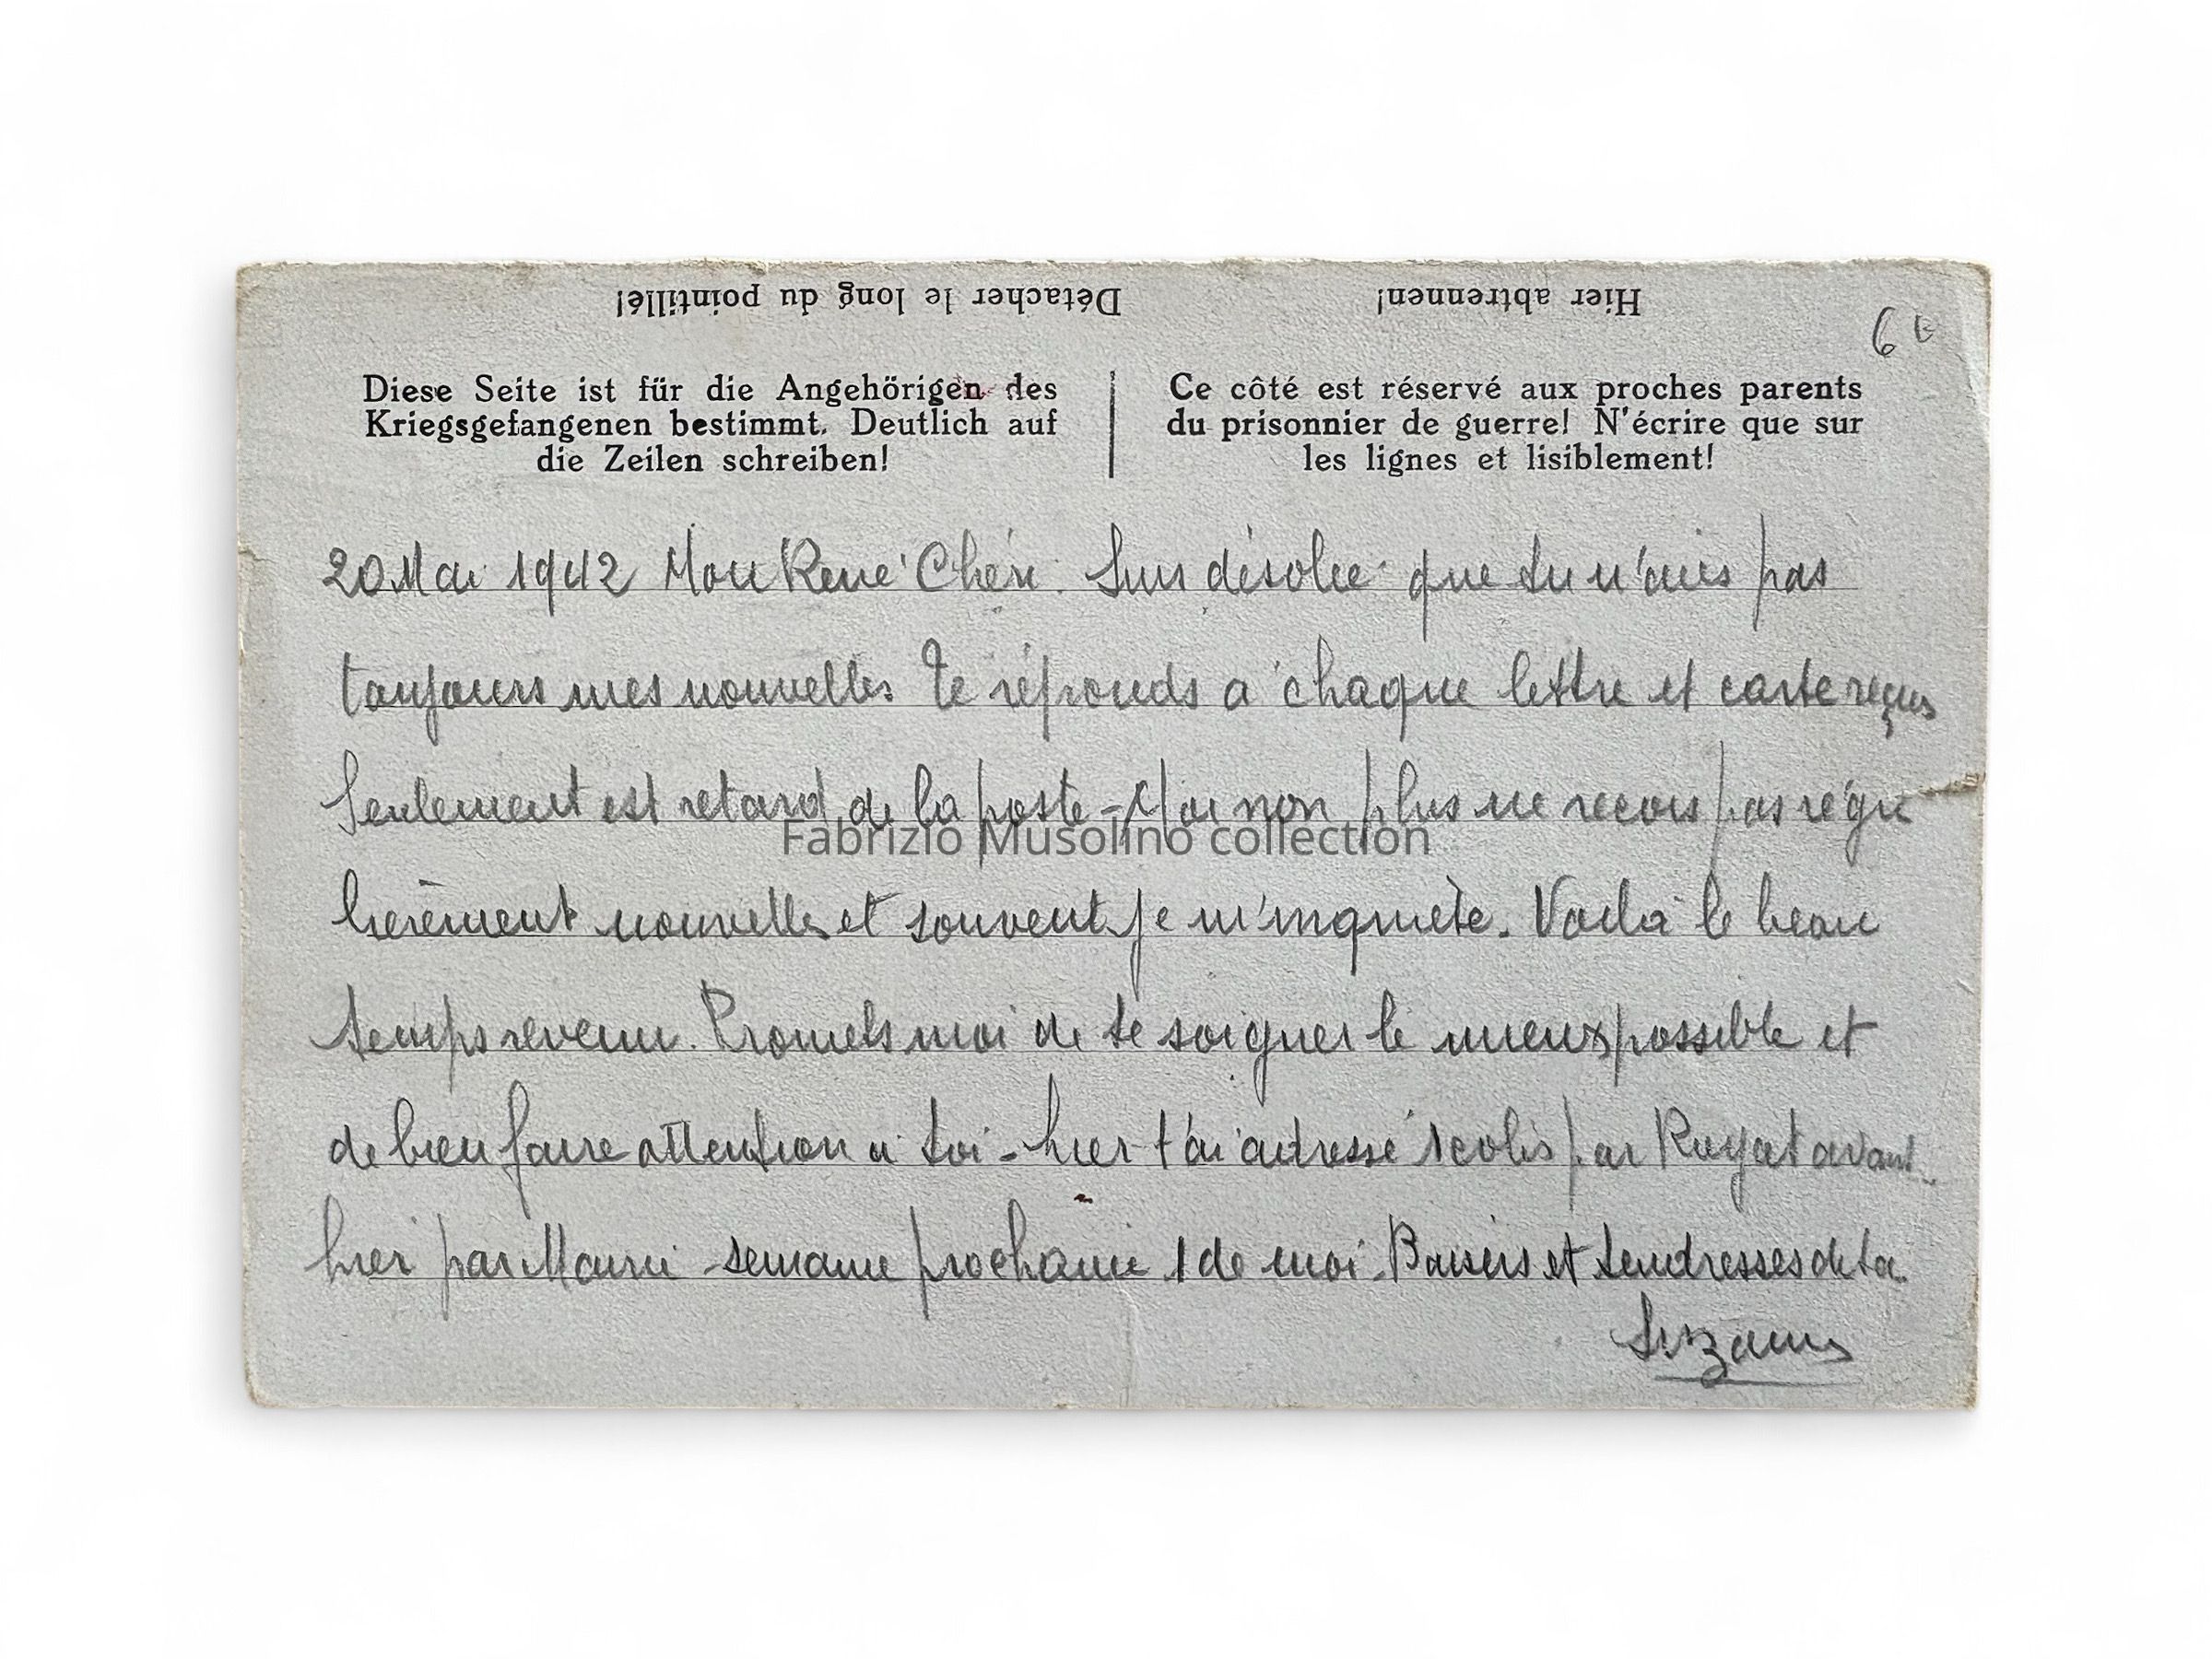 Détacher le long du pointillé!
Hier abtrennen!
6
Diese Seite ist für die Angehörigen des
Kriegsgefangenen bestimmt. Deutlich auf
die Zeilen schreiben!
Ce côté est réservé aux proches parents
du prisonnier de guerre! N'écrire que sur
les lignes et lisiblement!
20 Mai 1942 Mon René Chéri. Suis désolée que tu n'aies pas
toujours mes nouvelles Te réponds a chaque lettre et carte reçues
Seulement est retard de la poste - Moi non plus ne recois pas régu
lierèment nouvelles et souvent je m'inquiète. Voila le beau
temps revenu. Promets moi de te soigner le mieux possible et
de bien faire attention a toi - hier t'ai adressé 1 colis par Royat avant
hier par Mauri semaine prochaine 1 de moi. Baisers et tendresses de ta
Suzanne
Fabrizio Musolino collection